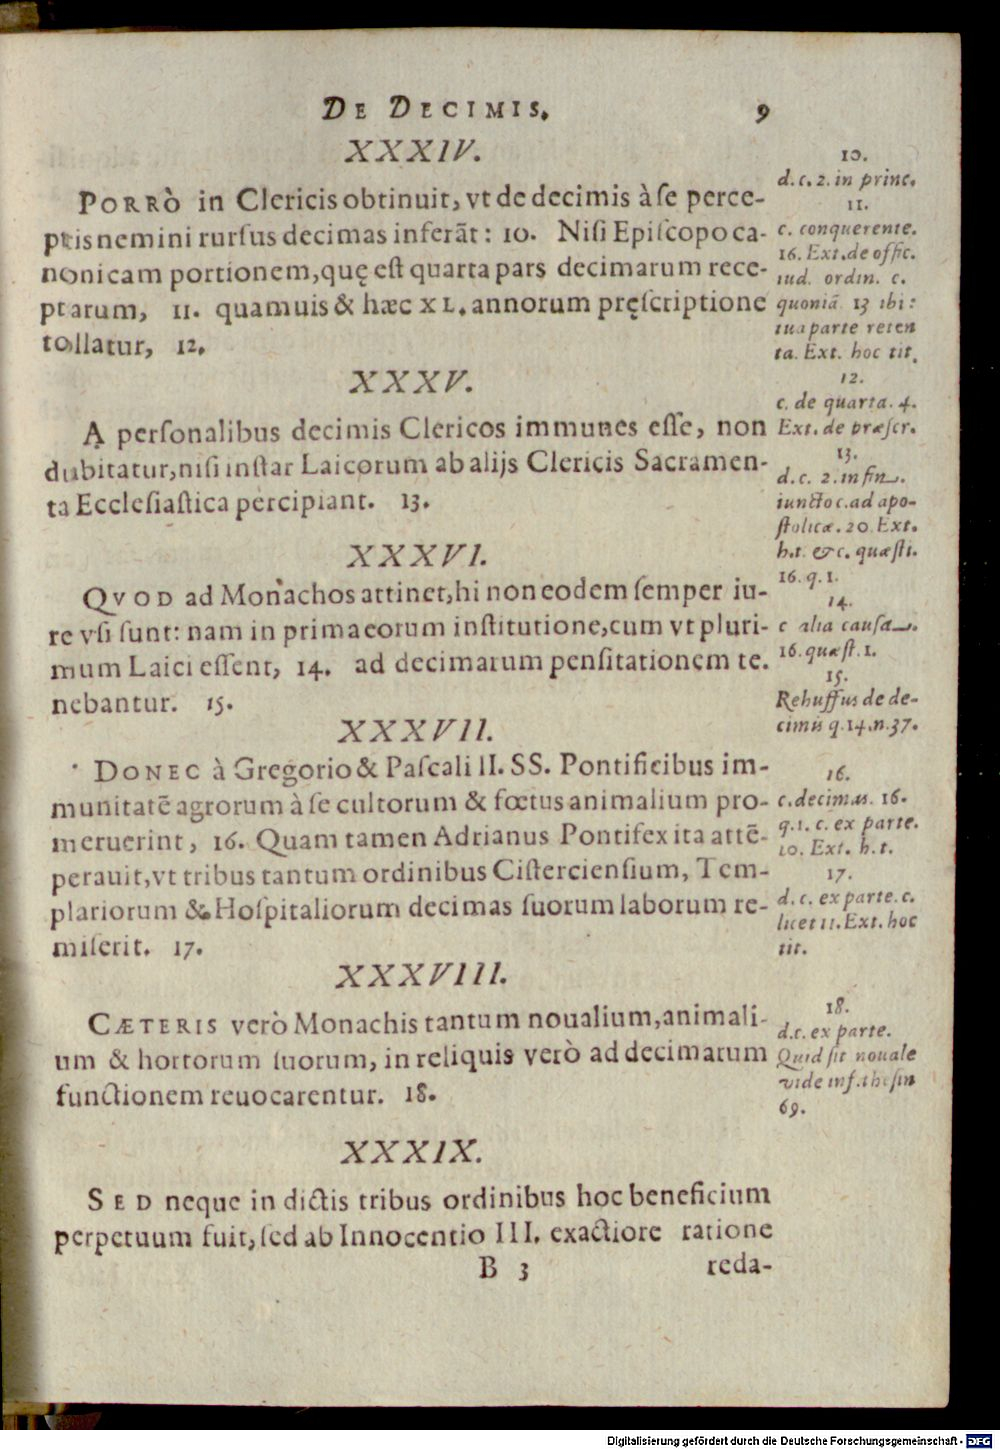 DE DECIMIS. 9
XXXIV.
PORRò in Clericis obtinuit, vt de decimis à se perce-
ptis nemini rursus decimas inferãt: 10. Nisi Episcopo ca-
nonicam portionem, quę est quarta pars decimarum rece-
ptarum, 11. quamuis & hæc XL. annorum pręscriptione
tollatur, 12.
XXXV.
A personalibus decimis Clericos immunes esse, non
dubitatur, nisi instar Laicorum ab alijs Clericis Sacramen-
ta Ecclesiastica percipiant. 13.
XXXVI.
QVOD ad Monachos attinet, hi non eodem semper iu-
re vsi sunt: nam in prima eorum institutione, cum vt pluri-
mum Laici essent, 14. ad decimarum pensitationem te-
nebantur. 15.
XXXVII.
DONEC à Gregorio & Pascali II. SS. Pontificibus im-
munitatẽ agrorum à se cultorum & fœtus animalium pro-
meruerint, 16. Quam tamen Adrianus Pontifex ita attẽ-
perauit, vt tribus tantum ordinibus Cisterciensium, Tem-
plariorum & Hospitaliorum decimas suorum laborum re-
miserit. 17.
XXXVIII.
CÆTERIS verò Monachis tantum noualium, animali-
um & hortorum suorum, in reliquis verò ad decimarum
functionem reuocarentur. 18.
XXXIX.
SED neque in dictis tribus ordinibus hoc beneficium
perpetuum fuit, sed ab Innocentio III. exactiore ratione
B 3 reda-
10.
d. c. 2. in princ.
11.
c. conquerente.
16. Ext. de offic.
iud. ordin. c.
quoniã 13 ibi:
tua parte reten
ta. Ext. hoc tit.
12.
c. de quarta. 4.
Ext. de præscr.
13.
d. c. 2. in fin.
iuncto c. ad apo-
stolicæ. 20. Ext.
h. t. & c. quæsti.
16. q. 1.
14.
c alia causa.
16. quæst. 1.
15.
Rebuffus de de-
cimis q. 14. n. 37.
16.
c. decimas. 16.
q. 1. c. ex parte.
10. Ext. h. t.
17.
d. c. ex parte. c.
licet 11. Ext. hoc
tit.
18.
d. c. ex parte.
Quid sit nouale
vide inf. thesin
69.
Digitalisierung gefördert durch die Deutsche Forschungsgemeinschaft - DFG